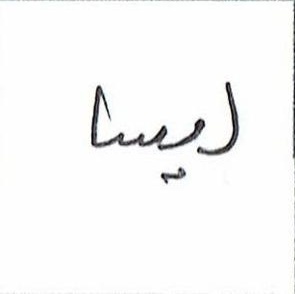 ليسا